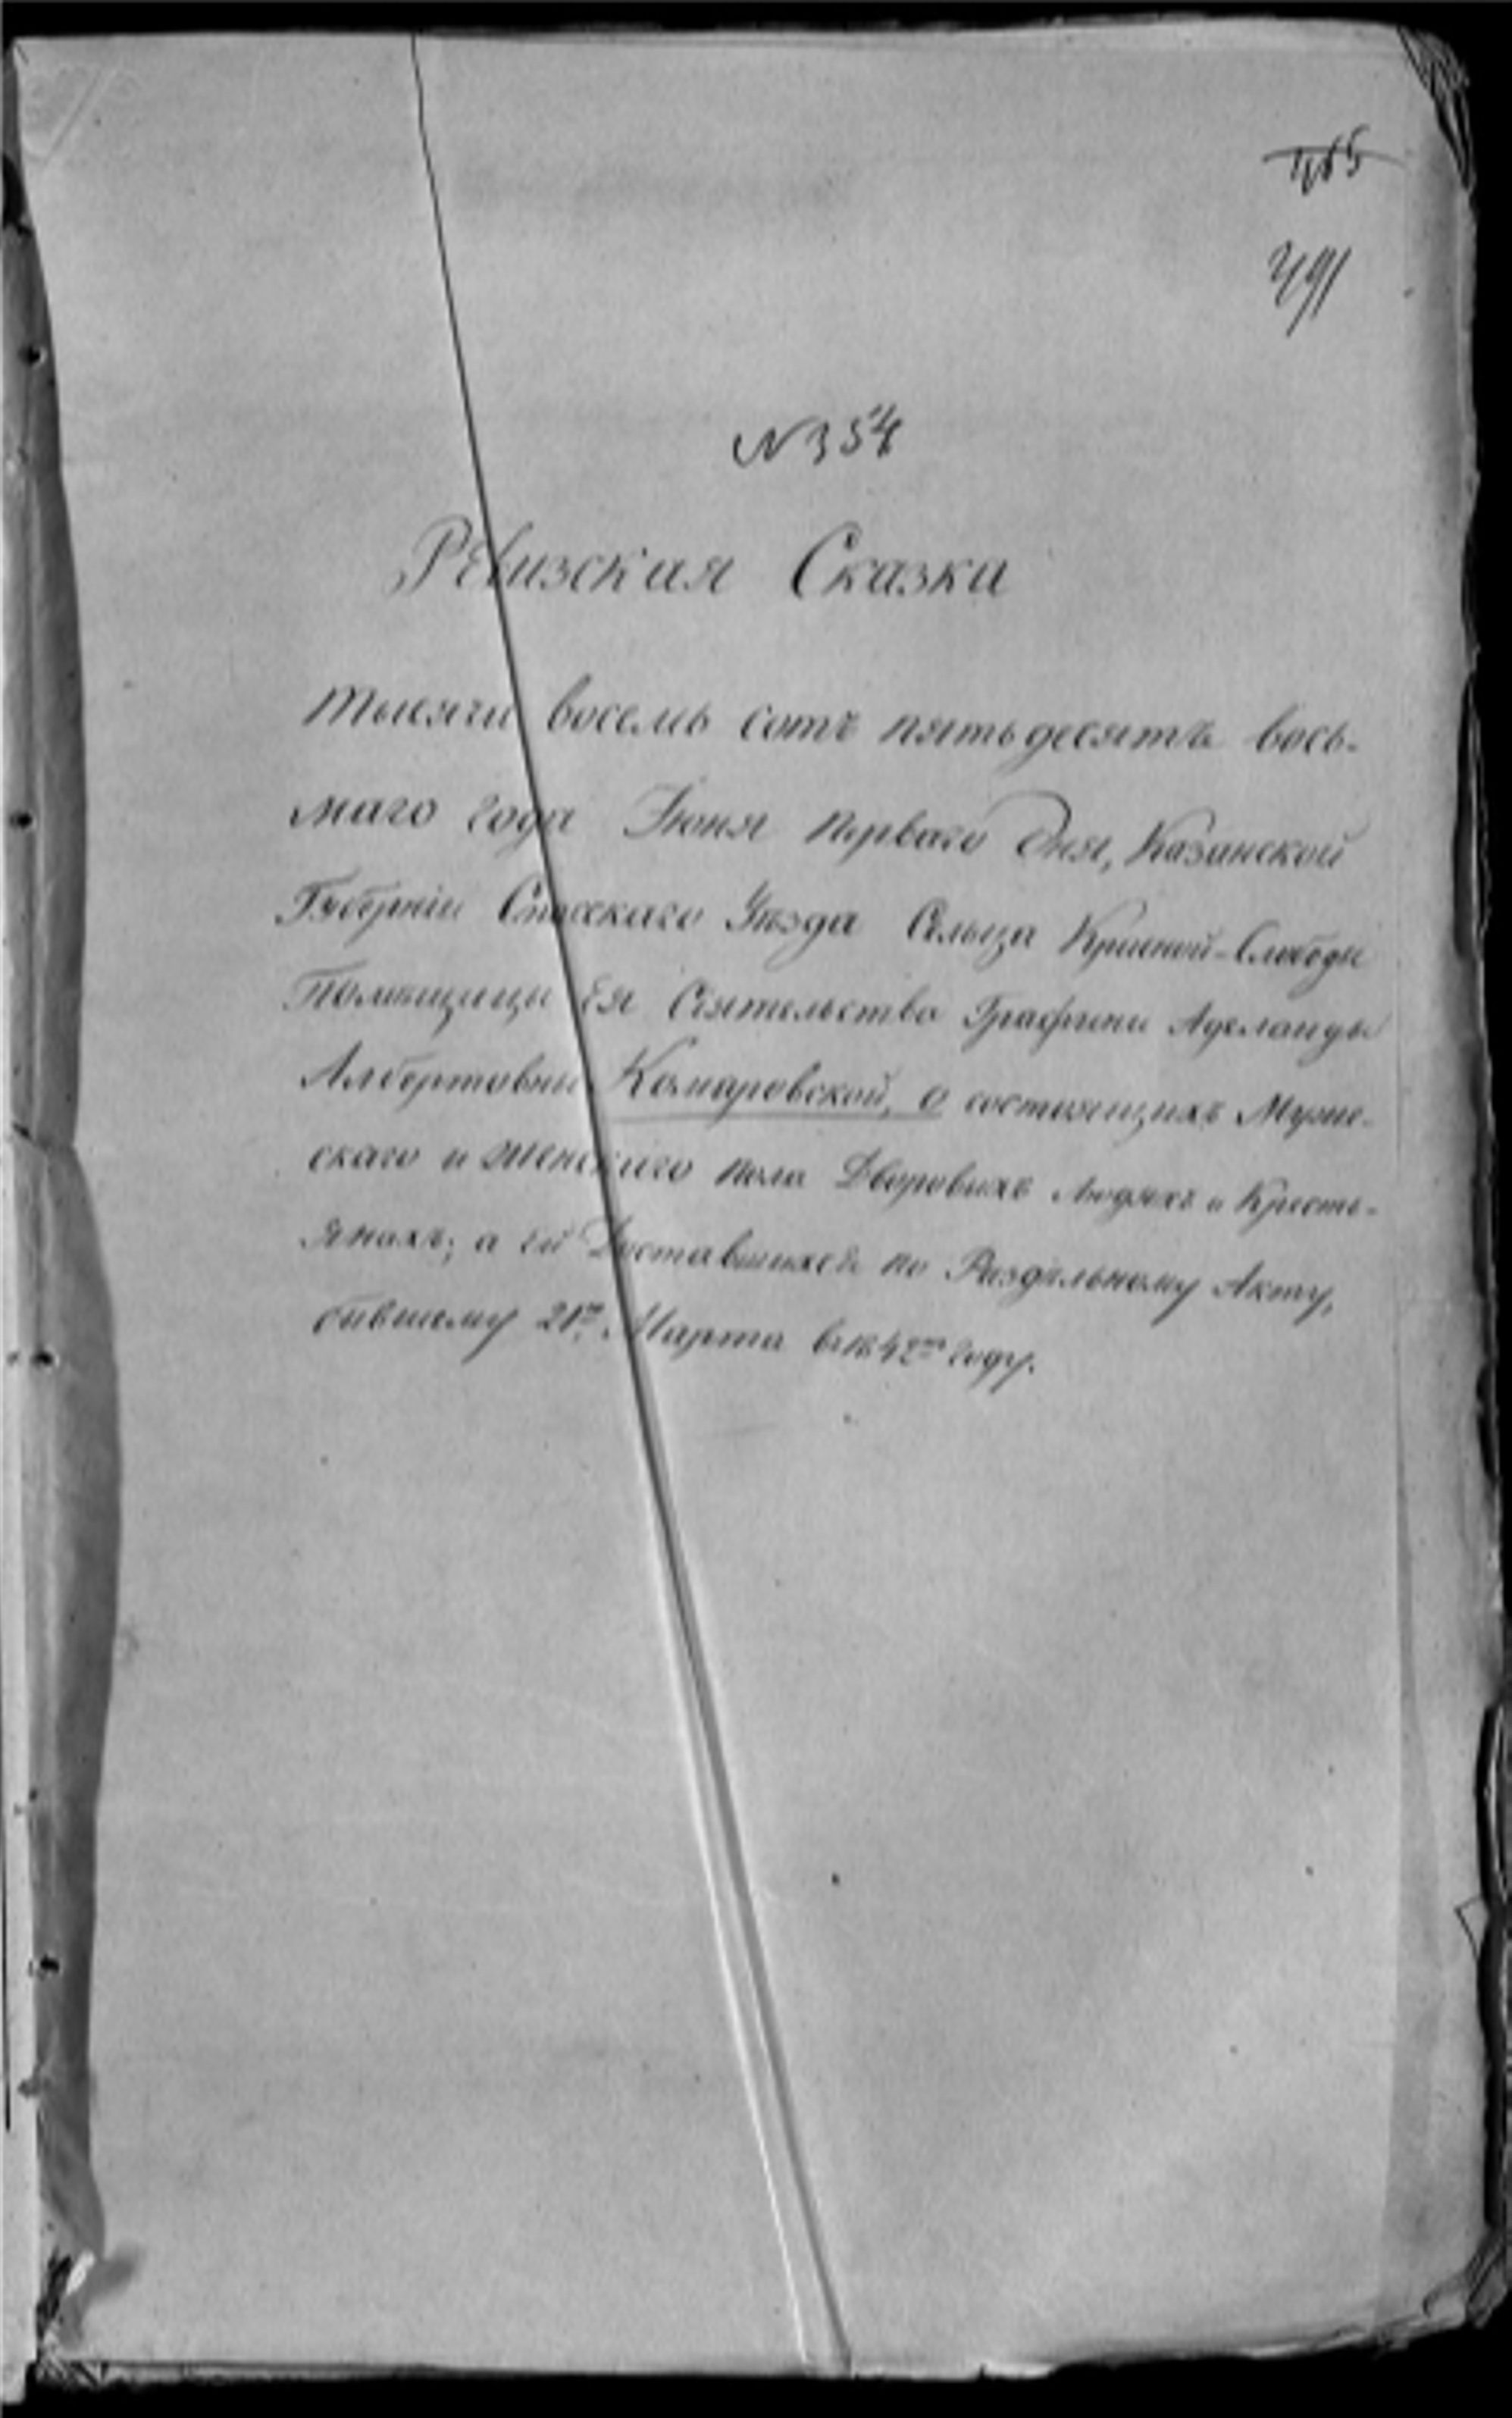 465
491
N 354
Ревизская Сказка
Тысяча восемь сотъ пятьдесятъ вось-
маго года Июня перваго дня, Казанской
Губерніи Спасскаго Уѣзда Сельца Красной-Слободы
Помѣщицы Ея Сіятельства Графини Аделаиды
Албертовны Комаровской, о состоящихъ Муже-
скаго и женскаго пола Дворовыхъ Людяхъ и Кресть-
янахъ; а ей Доставшихся по Раздѣльному Акту,
бывшему 21го Марта въ 1842мъ году.